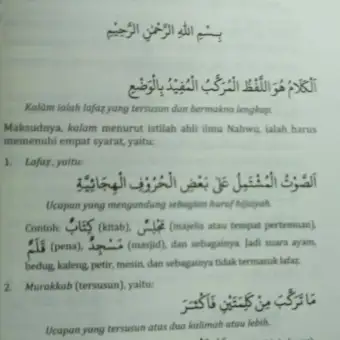 بِسْمِ اللهِ الرَّحْمٰنِ الرَّحِيْمِ
اَلْكَلَامُ هُوَ اللَّفْظُ الْمُرَكَّبُ الْمُفِيْدُ بِالْوَضْعِ
Kalâm ialah lafaz yang tersusun dan bermakna lengkap.
Maksudnya, kalam menurut istilah ahli ilmu Nahwu, ialah harus
memenuhi empat syarat, yaitu:
1. Lafaz, yaitu:
اَلصَّوْتُ الْمُشْتَمِلُ عَلَى بَعْضِ الْحُرُوْفِ الْهِجَائِيَّةِ
Ucapan yang mengandung sebagian huruf hijaiyah.
Contoh: كِتَابٌ (kitab), مَجْلِسٌ (majelis atau tempat pertemuan),
قَلَمٌ (pena), مَسْجِدٌ (masjid), dan sebagainya. Jadi suara ayam,
bedug, kaleng, petir, mesin, dan sebagainya tidak termasuk lafaz.
2. Murakkab (tersusun), yaitu:
مَا تَرَكَّبَ مِنْ كَلِمَتَيْنِ فَاَكْثَرَ
Ucapan yang tersusun atas dua kalimah atau lebih.